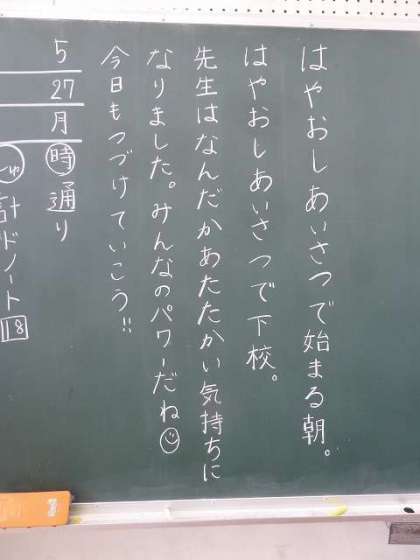 はやおしあいさつで始まる朝。
はやおしあいさつで下校。
先生はなんだかあたたかい気持ちに
なりました。みんなのパワーだね
今日もつづけていこう!!
5
27
月
時通り
計ドノート18